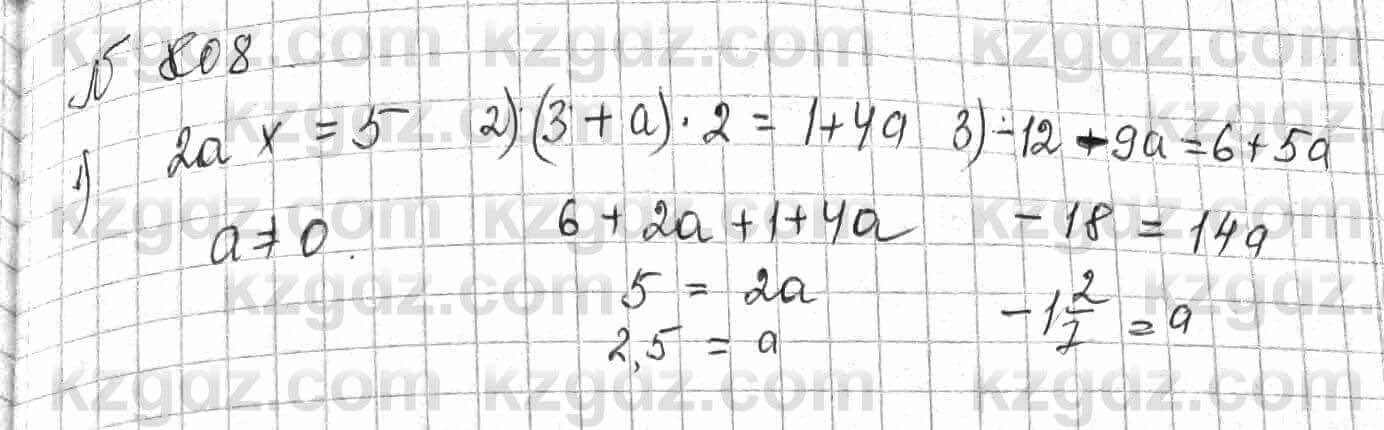 № 808
1) 2a x = 5
a ≠ 0.
2) (3 + a) · 2 = 1 + 4a
6 + 2a + 1 + 4a
5 = 2a
2,5 = a
3) -12 - 9a = 6 + 5a
- 18 = 14a
- 1 2/7 = a
kzgdz.com kzgdz.com kzgdz.com
kzgdz.com kzgdz.com kzgdz.com
kzgdz.com kzgdz.com kzgdz.com
kzgdz.com kzgdz.com kzgdz.com
kzgdz.com kzgdz.com kzgdz.com